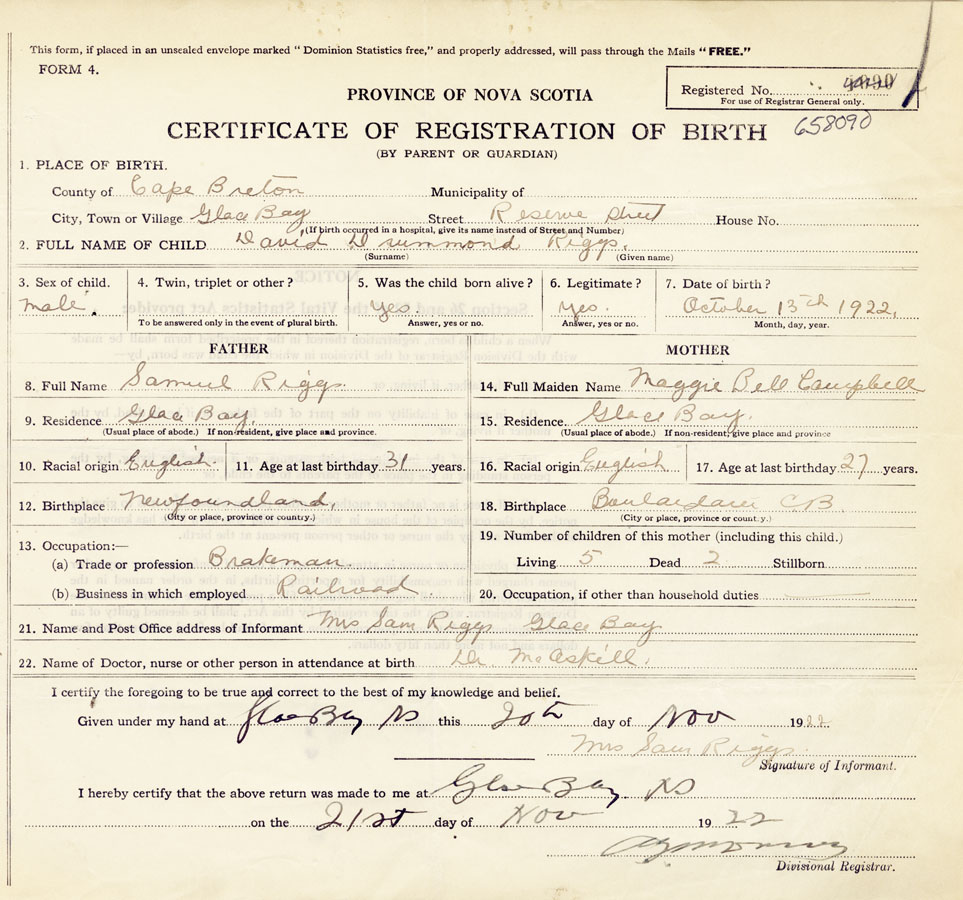 This form, if placed in an unsealed envelope marked " Dominion Statistics free," and properly addressed, will pass through the Mails "FREE."
FORM 4.
Registered No.
For use of Registrar General only.
658090
PROVINCE OF NOVA SCOTIA
CERTIFICATE OF REGISTRATION OF BIRTH
(BY PARENT OR GUARDIAN)
1. PLACE OF BIRTH.
County of Cape Breton Municipality of
City, Town or Village Glace Bay Street Reserve Street House No.
(If birth occurred in a hospital, give its name instead of Street and Number)
2. FULL NAME OF CHILD David Drummond Riggs.
(Surname) (Given name)
3. Sex of child. 4. Twin, triplet or other? 5. Was the child born alive? 6. Legitimate? 7. Date of birth?
Male. Yes. Yes. October 13th 1922.
To be answered only in the event of plural birth. Answer, yes or no. Answer, yes or no. Month, day, year.
FATHER MOTHER
8. Full Name Samuel Riggs. 14. Full Maiden Name Maggie Bell Campbell
9. Residence Glace Bay. 15. Residence. Glace Bay.
(Usual place of abode.) If non-resident, give place and province. (Usual place of abode.) If non-resident, give place and province
10. Racial origin English. 11. Age at last birthday 31 years. 16. Racial origin English 17. Age at last birthday 27 years.
12. Birthplace Newfoundland, 18. Birthplace Boulardarie CB.
(City or place, province or country.) (City or place, province or country.)
13. Occupation:— 19. Number of children of this mother (including this child.)
(a) Trade or profession Brakeman. Living 5 Dead 2 Stillborn
(b) Business in which employed Railroad. 20. Occupation, if other than household duties
21. Name and Post Office address of Informant Mrs Sam Riggs Glace Bay
22. Name of Doctor, nurse or other person in attendance at birth Dr. McAskill.
I certify the foregoing to be true and correct to the best of my knowledge and belief.
Given under my hand at Glace Bay NS this 20th day of Nov 1922
Mrs Sam Riggs.
Signature of Informant.
I hereby certify that the above return was made to me at Glace Bay NS
on the 21st day of Nov 1922
Divisional Registrar.